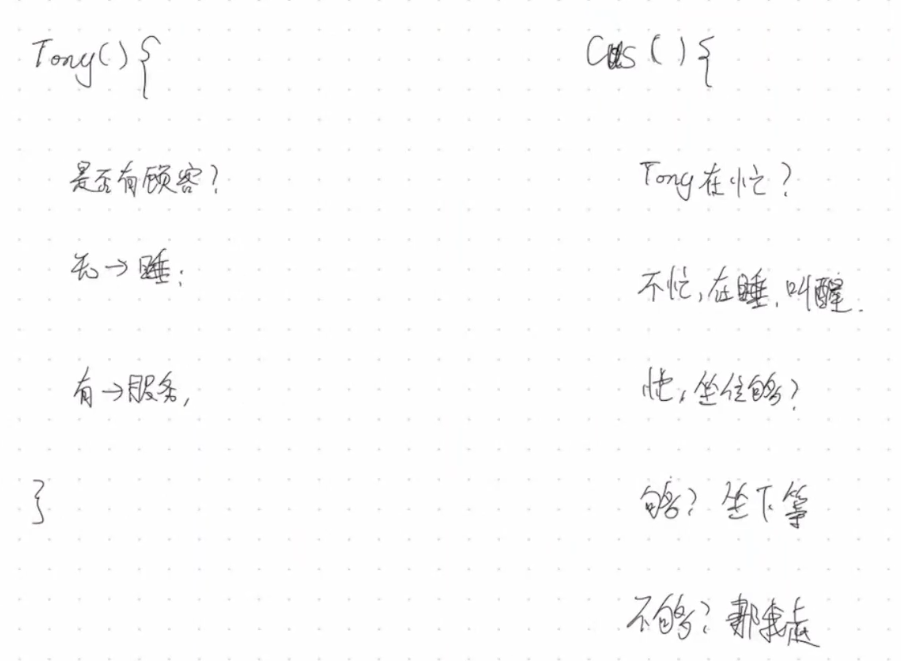 Tony(){
是否有顾客?
无→睡;
有→服务,
}
Cus(){
Tong在忙?
不忙,在睡,叫醒.
忙,坐位够?
够?坐下等
不够?那我走